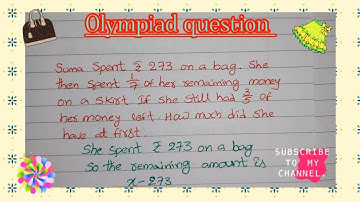 Olympiad question
Suma Spent ₹ 273 on a bag. She
then spent 1/7 of her remaining money
on a skirt. If she still had 3/5 of
her money left. How much did she
have at first.
She spent ₹ 273 on a bag
So the remaining amount is
x - 273
SUBSCRIBE
TO MY
CHANNEL